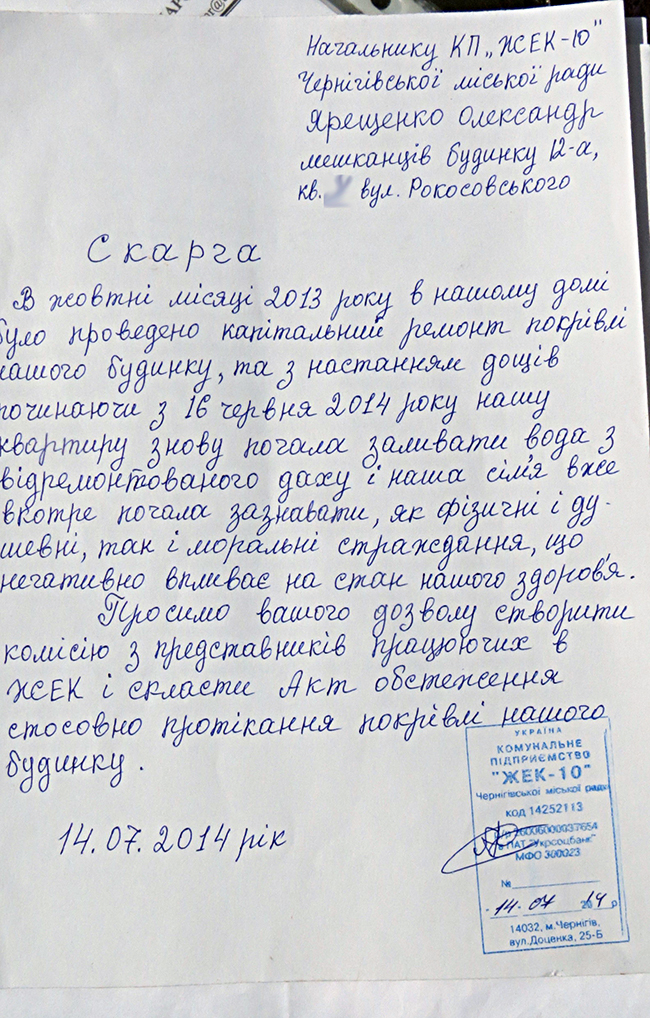 Начальнику КП „ЖЕК-10"
Чернігівської міської ради
Ярещенко Олександр
мешканців будинку 12-а,
кв. вул. Рокосовського
Скарга
В жовтні місяці 2013 року в нашому домі
було проведено капітальний ремонт покрівлі
нашого будинку, та з настанням дощів
починаючи з 16 червня 2014 року нашу
квартиру знову почала заливати вода з
відремонтованого даху і наша сім'я вже
вкотре почала зазнавати, як фізичні і ду-
шевні, так і моральні страждання, що
негативно впливає на стан нашого здоров'я.
Просимо вашого дозволу створити
комісію з представників працюючих в
ЖЕК і скласти Акт обстеження
стосовно протікання покрівлі нашого
будинку.
14.07.2014 рік
УКРАЇНА
КОМУНАЛЬНЕ
ПІДПРИЄМСТВО
"ЖЕК-10"
Чернігівської міської ради
код 14252113
р/р 26006000037654
в ПАТ "Укрсоцбанк"
МФО 300023
№
14. 07 2014 р
14032, м.Чернігів,
вул.Доценка, 25-Б